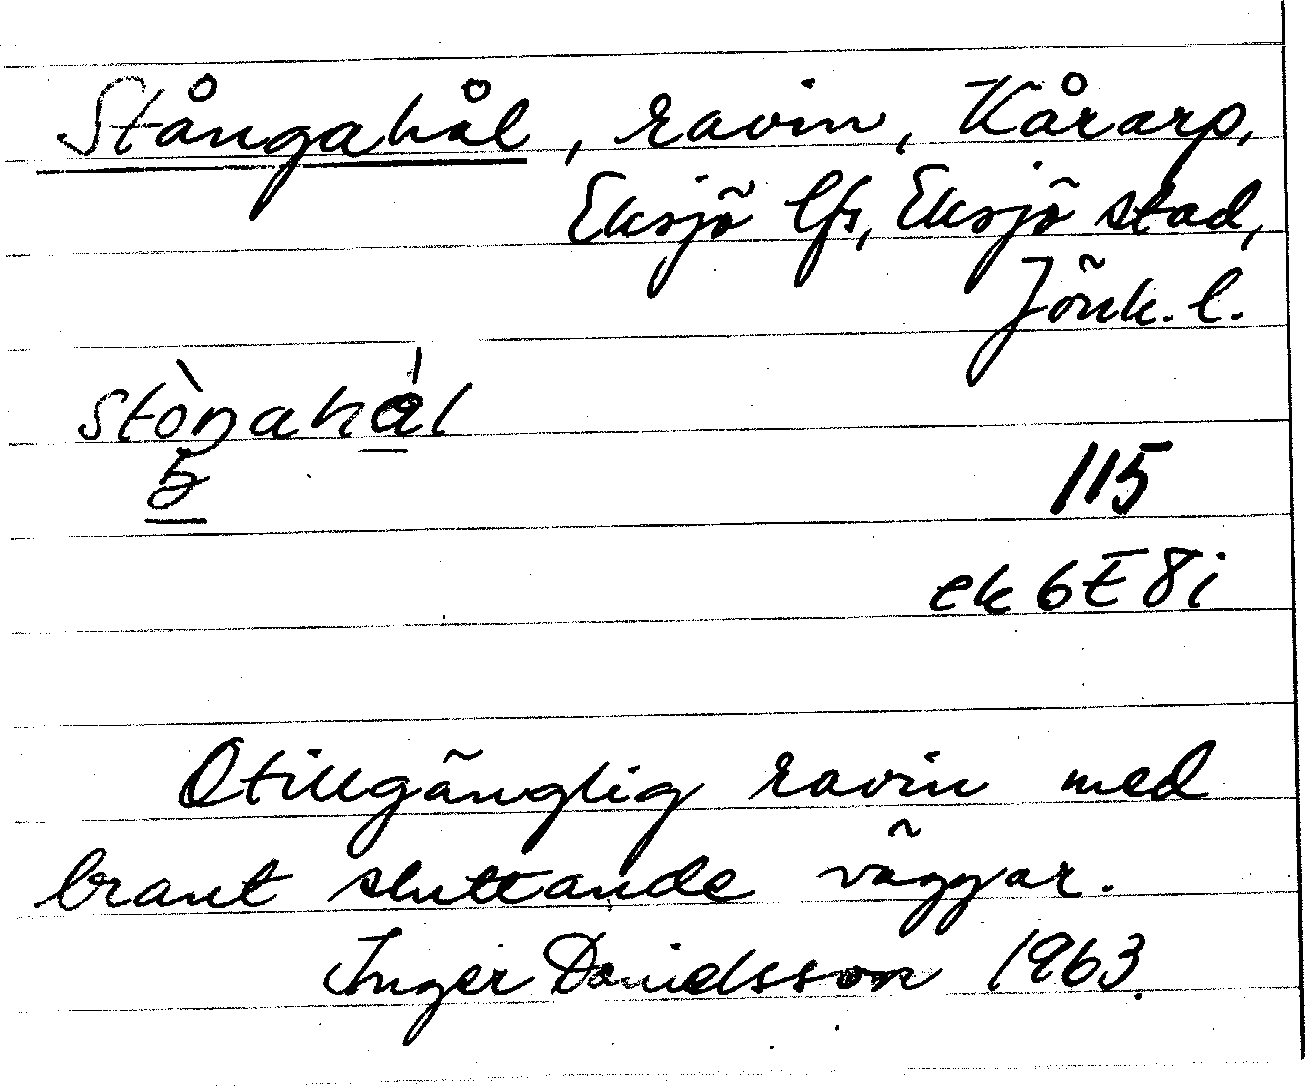 Stångahål, ravin, Kårarp,
Eksjö lfs, Eksjö stad,
Jönk. l.
stòŋahál
115
ek 6E 8i
Otillgänglig ravin med
brant sluttande väggar.
Inger Davidsson 1963.